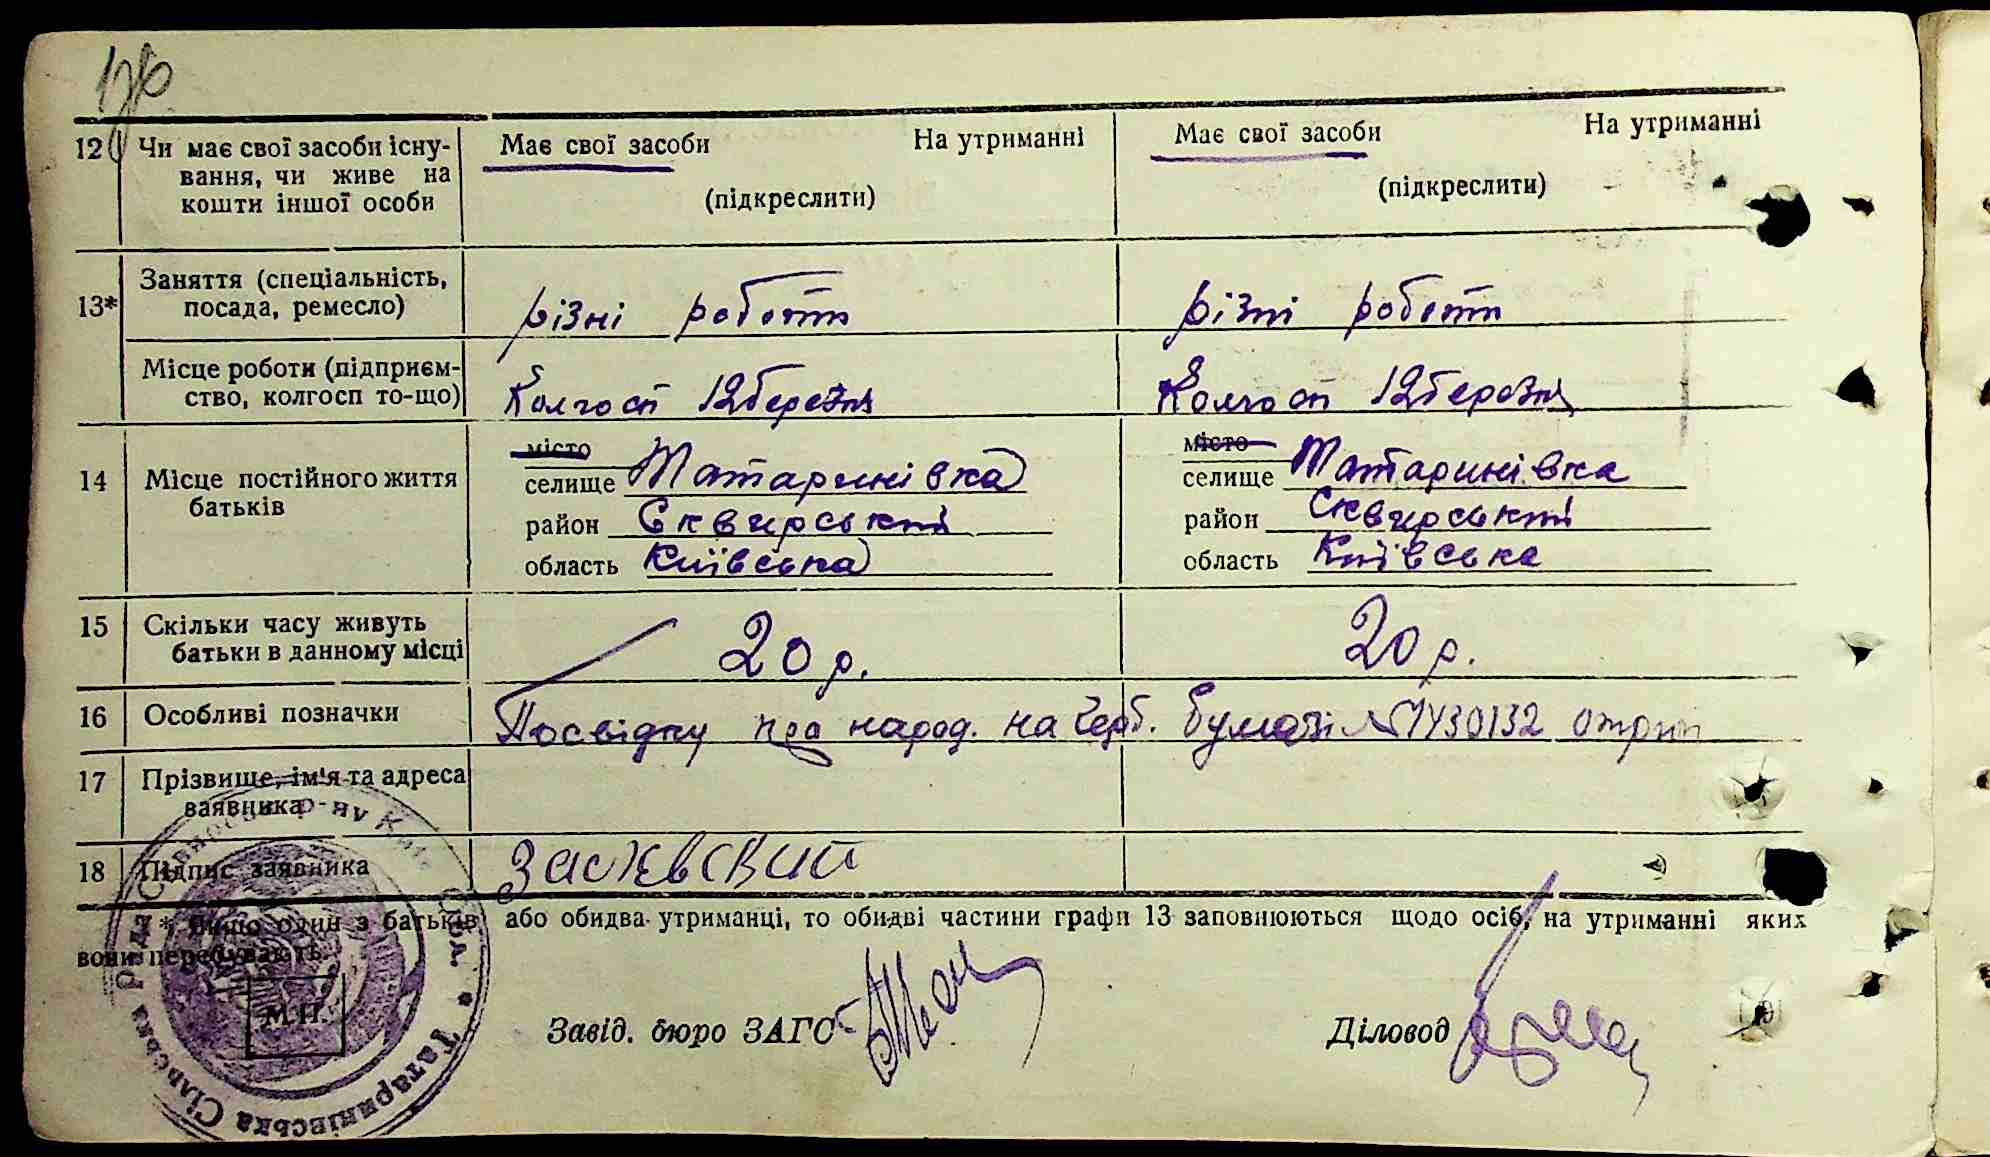 12 Чи має свої засоби існу-
вання, чи живе на
кошти іншої особи
Має свої засоби На утриманні
(підкреслити)
Має свої засоби На утриманні
(підкреслити)
13* Заняття (спеціальність,
посада, ремесло)
різні роботи
різні роботи
Місце роботи (підприєм-
ство, колгосп то-що)
Колгосп 12 березня
Колгосп 12 березня
14 Місце постійного життя
батьків
місто
селище Татаринівка
район Сквирський
область Київська
місто
селище Татаринівка
район Сквирський
область Київська
15 Скільки часу живуть
батьки в данному місці
20 р.
20 р.
16 Особливі позначки
Посвідку про народ. на герб. бумазі № 430132 отрим
17 Прізвище, ім'я та адреса
заявника
18 Підпис заявника
Заскевский
* Якщо один з батьків або обидва утриманці, то обидві частини графи 13 заповнюються щодо осіб, на утриманні яких
вони перебувають.
М.П.
Завід. бюро ЗАГС
Діловод
Татаринівська Сільська Рада